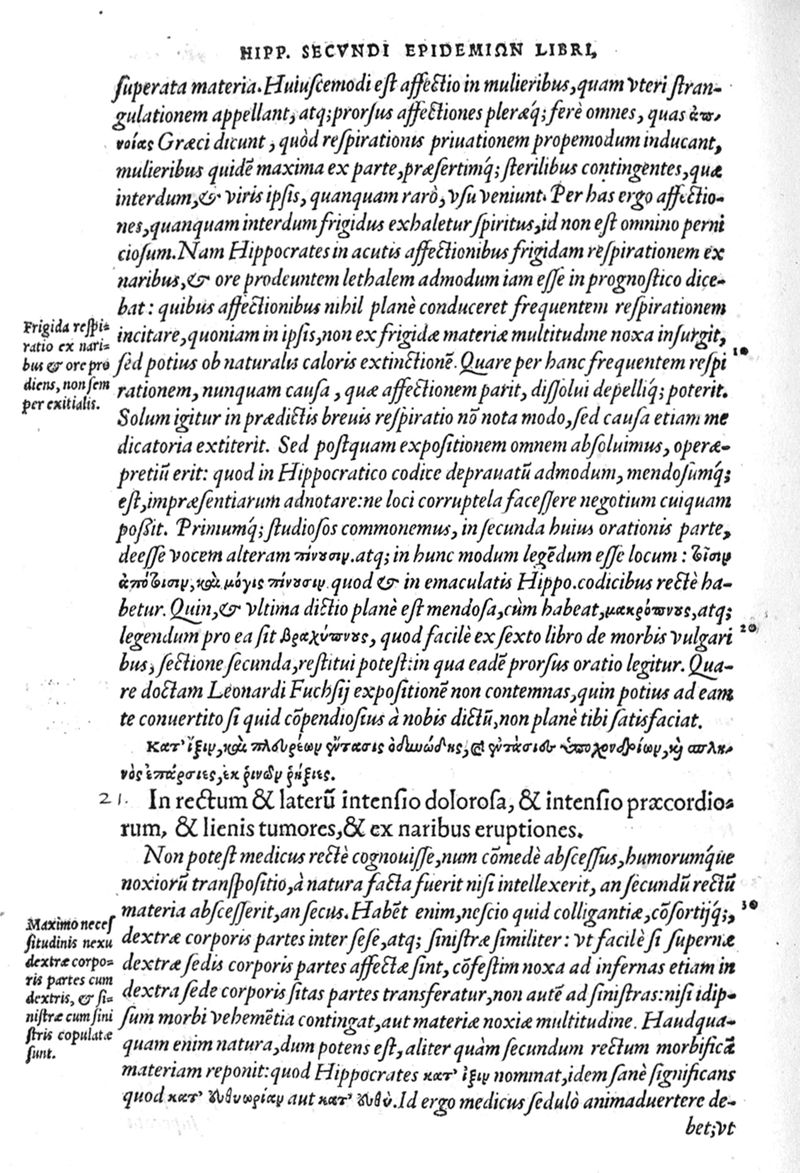 HIPP. SECVNDI EPIDEMIΩN LIBRI,
ſuperata materia. Huiuſcemodi eſt affectio in mulieribus, quam vteri ſtran-
gulationem appellant, atq; prorſus affectiones pleræq́; ferè omnes, quas ἀπ-
νοίας Græci dicunt, quòd reſpirationis priuationem propemodum inducant,
mulieribus quidē maxima ex parte, præſertimq́; ſterilibus contingentes, quæ
interdum, & viris ipſis, quanquam rarò, vſu veniunt. Per has ergo affectio-
nes, quanquam interdum frigidus exhaletur ſpiritus, id non eſt omnino perni
cioſum. Nam Hippocrates in acutis affectionibus frigidam reſpirationem ex
naribus, & ore prodeuntem lethalem admodum iam eſſe in prognoſtico dice-
bat: quibus affectionibus nihil planè conduceret frequentem reſpirationem
Frigida reſpi-
ratio ex nari-
bus & ore pro
diens, non ſem
per exitialis.
incitare, quoniam in ipſis, non ex frigidæ materiæ multitudine noxa inſurgit,
ſed potius ob naturalis caloris extinctionē. Quare per hanc frequentem reſpi
10
rationem, nunquam cauſa, quæ affectionem parit, diſſolui depelliq́; poterit.
Solum igitur in prædictis breuis reſpiratio nō nota modo, ſed cauſa etiam me
dicatoria extiterit. Sed poſtquam expoſitionem omnem abſoluimus, operæ-
pretiū erit: quod in Hippocratico codice deprauatū admodum, mendoſumq́;
eſt, impræſentiarum adnotare: ne loci corruptela faceſſere negotium cuiquam
poſſit. Primumq́; ſtudioſos commonemus, in ſecunda huius orationis parte,
deeſſe vocem alteram πίνουσιν. atq; in hunc modum legēdum eſſe locum: θίσιν
ἀπόθισιν, καὶ μόγις πίνουσιν. quod & in emaculatis Hippo. codicibus rectè ha-
betur. Quin, & vltima dictio planè eſt mendoſa, cùm habeat, μακρόπνους, atq;
legendum pro ea ſit βραχύπνους, quod facilè ex ſexto libro de morbis vulgari
20
bus, ſectione ſecunda, reſtitui poteſt: in qua eadē prorſus oratio legitur. Qua-
re doctam Leonardi Fuchſij expoſitionē non contemnas, quin potius ad eam
te conuertito ſi quid cōpendioſius à nobis dictū, non planè tibi ſatisfaciat.
Κατ' ἴξιν, καὶ πλευρέων ἔντασις ὀδυνώδης, καὶ ἐντάσιες ὑποχονδρίων, καὶ σπλη-
νὸς ἐπάρσιες, ἐκ ῥινῶν ῥήξιες.
21. In rectum & laterū intenſio doloroſa, & intenſio præcordio-
rum, & lienis tumores, & ex naribus eruptiones.
Non poteſt medicus rectè cognouiſſe, num cōmedè abſceſſus, humorumq́ue
noxiorū tranſpoſitio, à natura facta fuerit niſi intellexerit, an ſecundū rectū
materia abſceſſerit, an ſecus. Habēt enim, neſcio quid colligantiæ, cōſortijq́;,
30
Maximo neceſ
ſitudinis nexu
dextræ corpo-
ris partes cum
dextris, & ſi-
niſtræ cum ſini
ſtris copulatæ
ſunt.
dextræ corporis partes inter ſeſe, atq; ſiniſtræ ſimiliter: vt facilè ſi ſupernæ
dextræ ſedis corporis partes affectæ ſint, cōfeſtim noxa ad infernas etiam in
dextra ſede corporis ſitas partes transferatur, non autē ad ſiniſtras: niſi idip-
ſum morbi vehemētia contingat, aut materiæ noxiæ multitudine. Haudqua-
quam enim natura, dum potens eſt, aliter quàm ſecundum rectum morbificā
materiam reponit: quod Hippocrates κατ' ἴξιν nominat, idem ſanè ſignificans
quod κατ' εὐθυωρίαν aut κατ' εὐθύ. Id ergo medicus ſedulò animaduertere de-
bet, vt